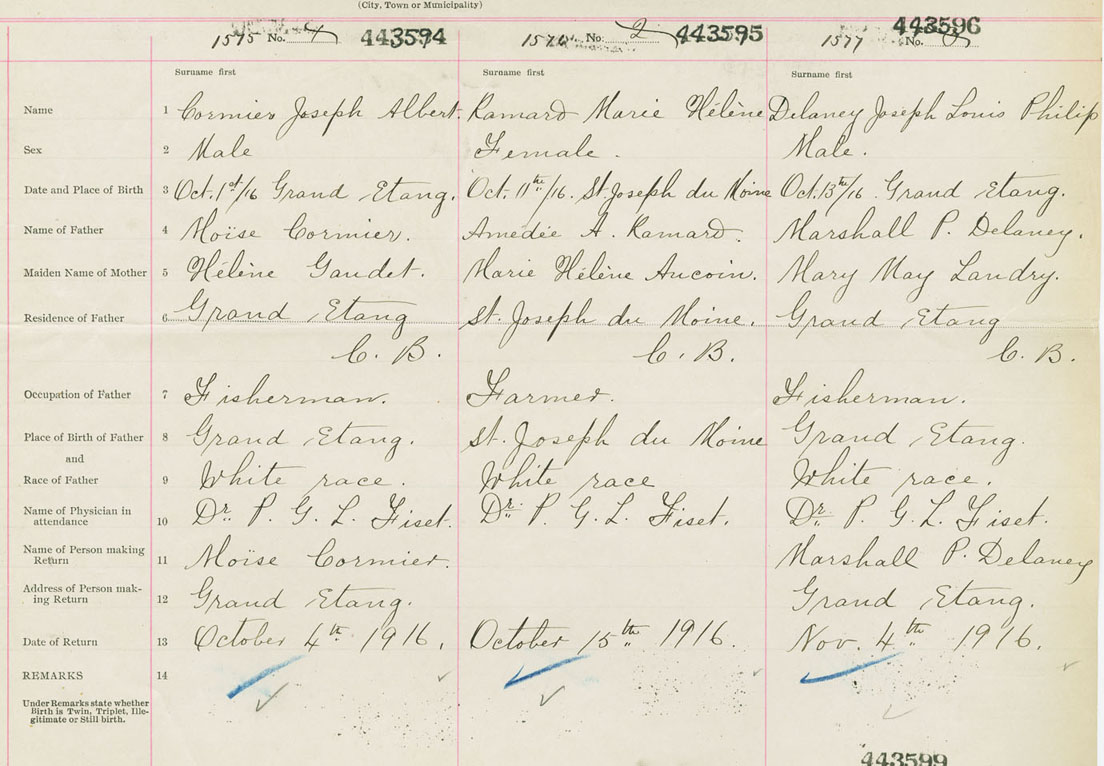 (City, Town or Municipality)
1575 No. 443594 1576 No. 2 443595 1577 No. 443596
Surname first Surname first Surname first
Name 1 Cormier Joseph Albert. Ramard Marie Hélène Delaney Joseph Louis Philip
Sex 2 Male Female. Male.
Date and Place of Birth 3 Oct. 1st/16 Grand Etang. Oct. 11th/16. St. Joseph du Moine Oct. 13th/16. Grand Etang.
Name of Father 4 Moïse Cormier. Amédée A. Ramard. Marshall P. Delaney.
Maiden Name of Mother 5 Hélène Gaudet. Marie Hélène Aucoin. Mary May Landry.
Residence of Father 6 Grand Etang St. Joseph du Moine. Grand Etang
C. B. C. B. C. B.
Occupation of Father 7 Fisherman. Farmer. Fisherman.
Place of Birth of Father 8 Grand Etang. St. Joseph du Moine Grand Etang.
and
Race of Father 9 White race. White race White race.
Name of Physician in attendance 10 Dr. P. G. L. Fiset. Dr. P. G. L. Fiset. Dr. P. G. L. Fiset.
Name of Person making Return 11 Moïse Cormier. Marshall P. Delaney
Address of Person making Return 12 Grand Etang. Grand Etang.
Date of Return 13 October 4th 1916. October 15th 1916. Nov. 4th 1916.
REMARKS 14
Under Remarks state whether
Birth is Twin, Triplet, Ille-
gitimate or Still birth.
443599